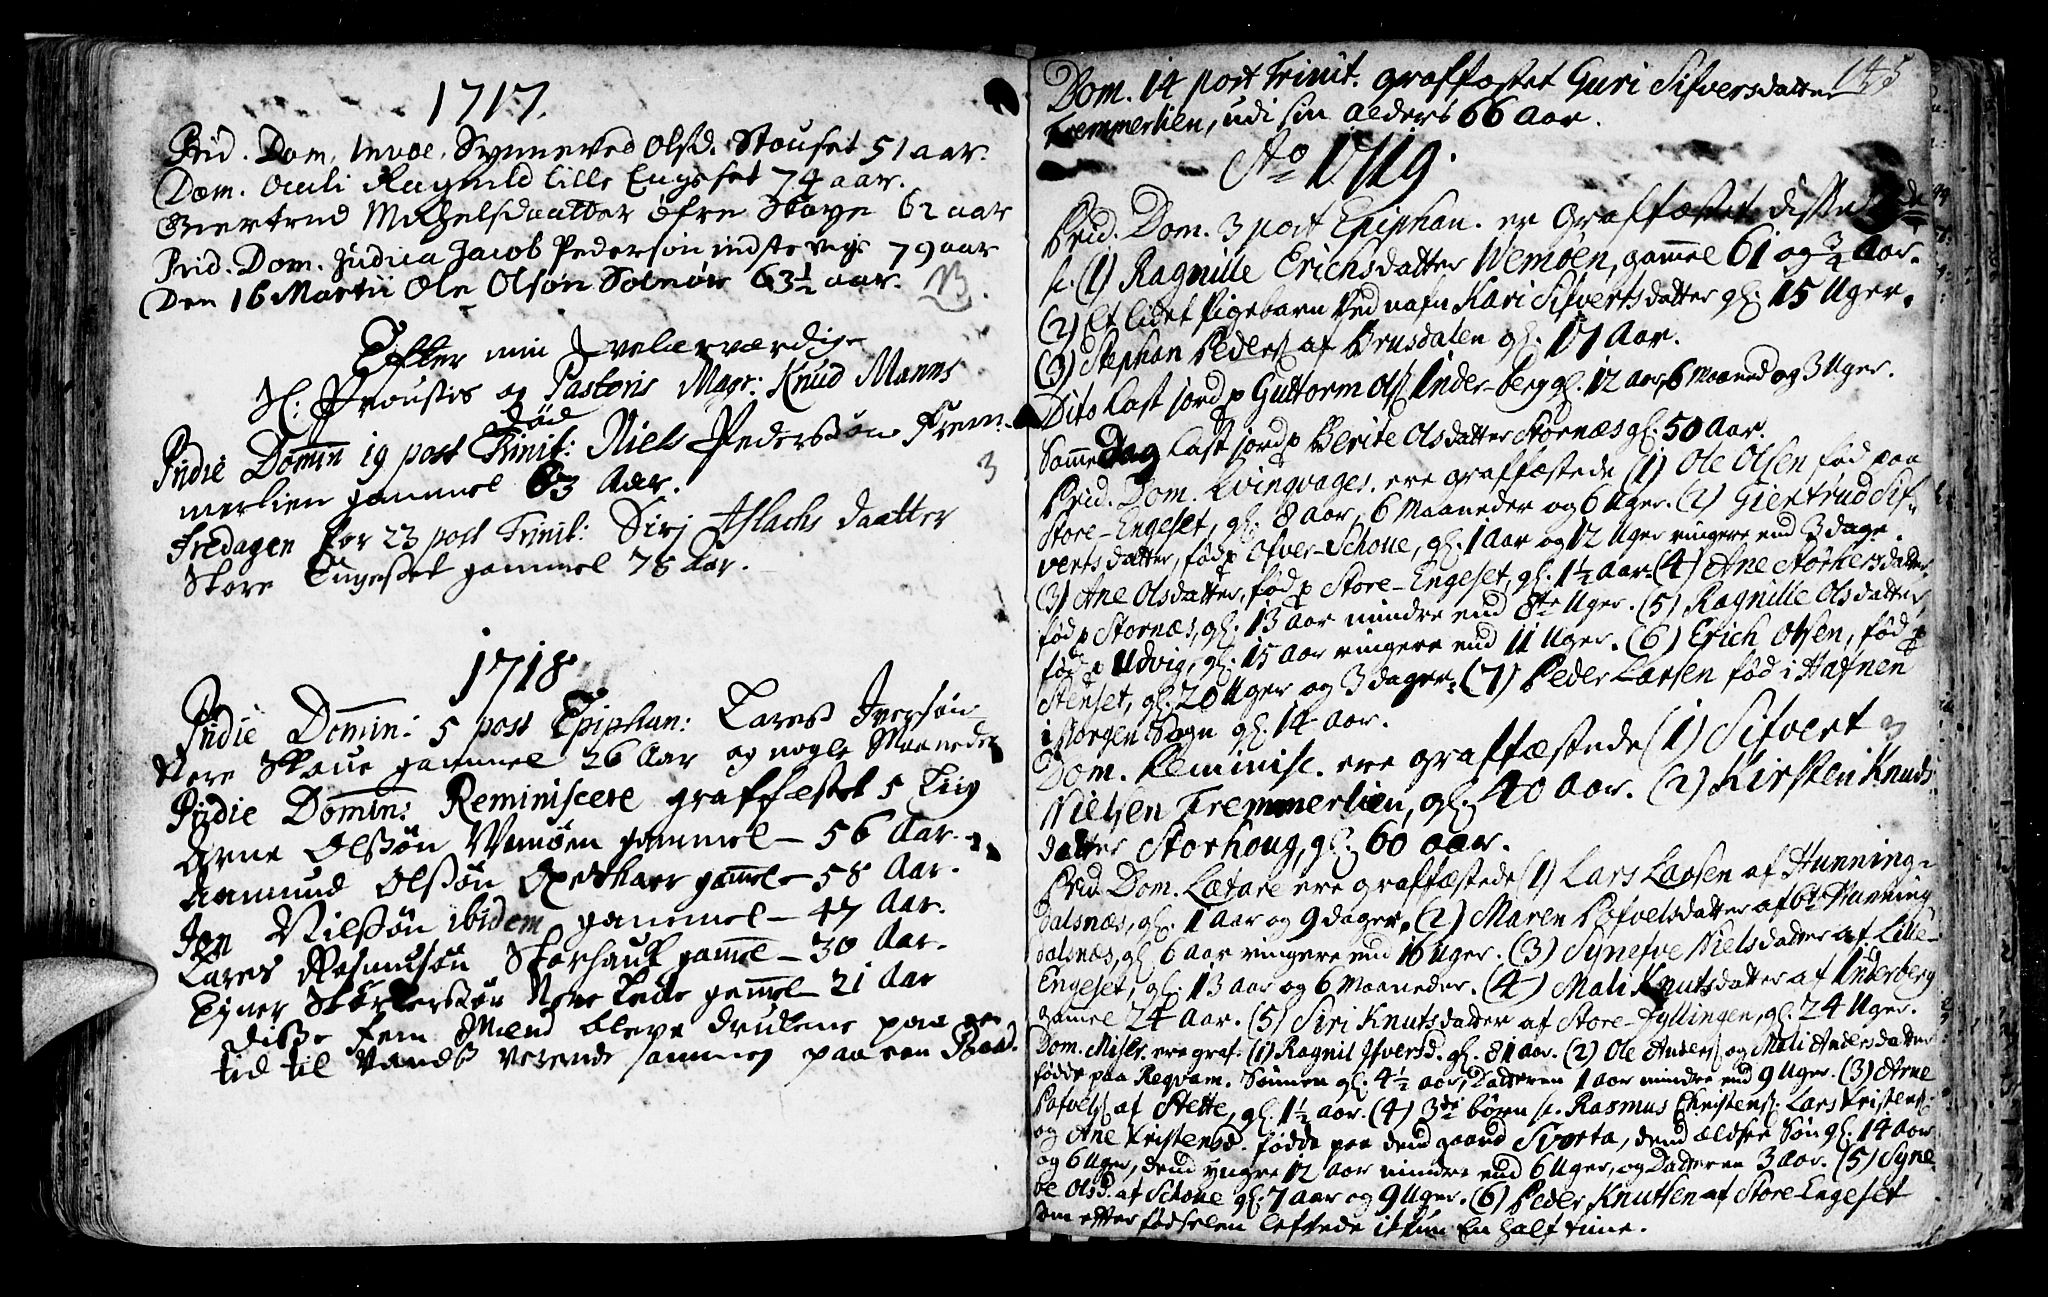 1717.
Prid. Dom. Invoc. Synneved Olsd. Stouset 51 aar.
Dom. Oculi Ragnild Lille Engset 74 aar.
Giertrud Michelsdaatter öfre Skoye 62 aar
Prid. Dom. Judica Jacob Pedersön indstevig 79 aar
Den 16 Martii Ole Olsön Solnör 63½ aar. NB.
Efter min Velærværdige
Sl: Proustis og Pastoris Magr: Knud Manns
Död
Pridie Domin 19 post Trinit: Niels Pedersön Frem-
merlien gammel 63 Aar.
3
Fredagen for 23 post Trinit: Siri Aslachs daatter
Store Engeset gammel 78 Aar.
1718
Pridie Domin: 5 post Epiphan: Lares Iversön
Nere Skoue gammel 26 Aar og nogle Maaneder
Pridie Domin: Reminiscere graffæstet 5 Liig
Arne Olsön Vemöen gammel - 56 Aar.
Aamund Olsön Oxeskaar gamel - 58 Aar.
Jon Nilsön ibidem gammel - 47 Aar.
Lares Rasmusön Storhaug gamel - 30 Aar.
Ejner Störkersön Nere Lede gamel - 21 Aar
disse fem Mænd bleve drukne paa en
tid til Vands verende sammen paa een Baad.
145
Dom. 14 post Trinit. graffæstet Guri Sifversdatter
Fremmerlien, udi sin alders 66 Aar.
Ao 1719.
Prid. Dom. 3 post Epiphan. er Graffæstet disse
sc. (1) Ragnille Erichsdatter Wemöen, gammel 61 og ¾ Aar.
(2) Et lidet Pigebarn ved nafn Kari Sifvertsdatter gl. 15 Uger.
(3) Stephan Peders. af Brusdalen gl. 17 Aar.
Dito Cast jord p Guttorm Ols. Inderberg gl. 12 aar, 6 Maaned og 3 Uger.
Samme Dag Cast jord p Berite Olsdatter Stornæs gl. 50 Aar.
Prid. Dom. Qvinqvages. ere graffæstede (1) Ole Olsen fød paa
Store-Engeset, gl. 8 aar, 6 Maaneder og 6 Uger. (2) Giertrud Sif-
vertsdatter, fød p Ofver-Schoue, gl. 1 Aar og 12 Uger ringere end 3 dage.
(3) Ane Olsdatter, fød p Store-Engeset, gl. 1½ aar. (4) Ane Størkersdatter
fød p Stornæs, gl. 13 aar mindre end 8te Uger. (5) Ragnille Olsdatter,
fød p Udvig, gl. 15 aar ringere end 11 Uger. (6) Erich Olsen, fød p
Stenset, gl. 20 Uger og 3 dager. (7) Peder Larsen fød i Hafnen
i Borgen Sogn gl. 14 aar.
Dom. Reminisc. ere graffæstede (1) Sifvert
Nielsen Fremmerlien, gl. 40 aar. (2) Kirsten Knuds
datter Storhoug, gl. 60 aar.
Prid. Dom. Lætare ere graffæstede (1) Lars Larsen af Hunning-
dalsnæs, gl. 1 aar og 9 dager. (2) Maren Pofvelsdatter af Hunning
dalsnæs, gl. 6 aar ringere end 16 Uger. (3) Synefve Nielsdatter af Lille-
Engeset, gl. 13 aar og 6 Maaneder. (4) Mali Knutsdatter af Inderberg
gamel 24 Aar. (5) Siri Knutsdatter af Store-Hyllingen, gl. 24 Uger.
Dom. Miser. ere graf. (1) Ragnil Ifversd. gl. 81 aar. (2) Ole Anders. og Mali Andersdatter
fødde paa Regvam. Sønnen gl. 4½ aar, Datteren 1 aar mindre end 9 Uger. (3) Arne
Pofvels. af Stette, gl. 1½ aar. (4) 3de børn sc. Rasmus Christens. Lars Kristens.
og Ane Kristensd. fødde paa dend gaard Svorta, dend ældste Søn gl. 14 aar
og 6 Uger, dend yngre 12 aar mindre end 6 Uger, og Datteren 3 aar. (5) Syne-
ve Olsd. af Schoue gl. 7 aar og 9 Uger. (6) Peder Knutsen af Store Engeset
som efter fødselen lefvede ikkun En half time.